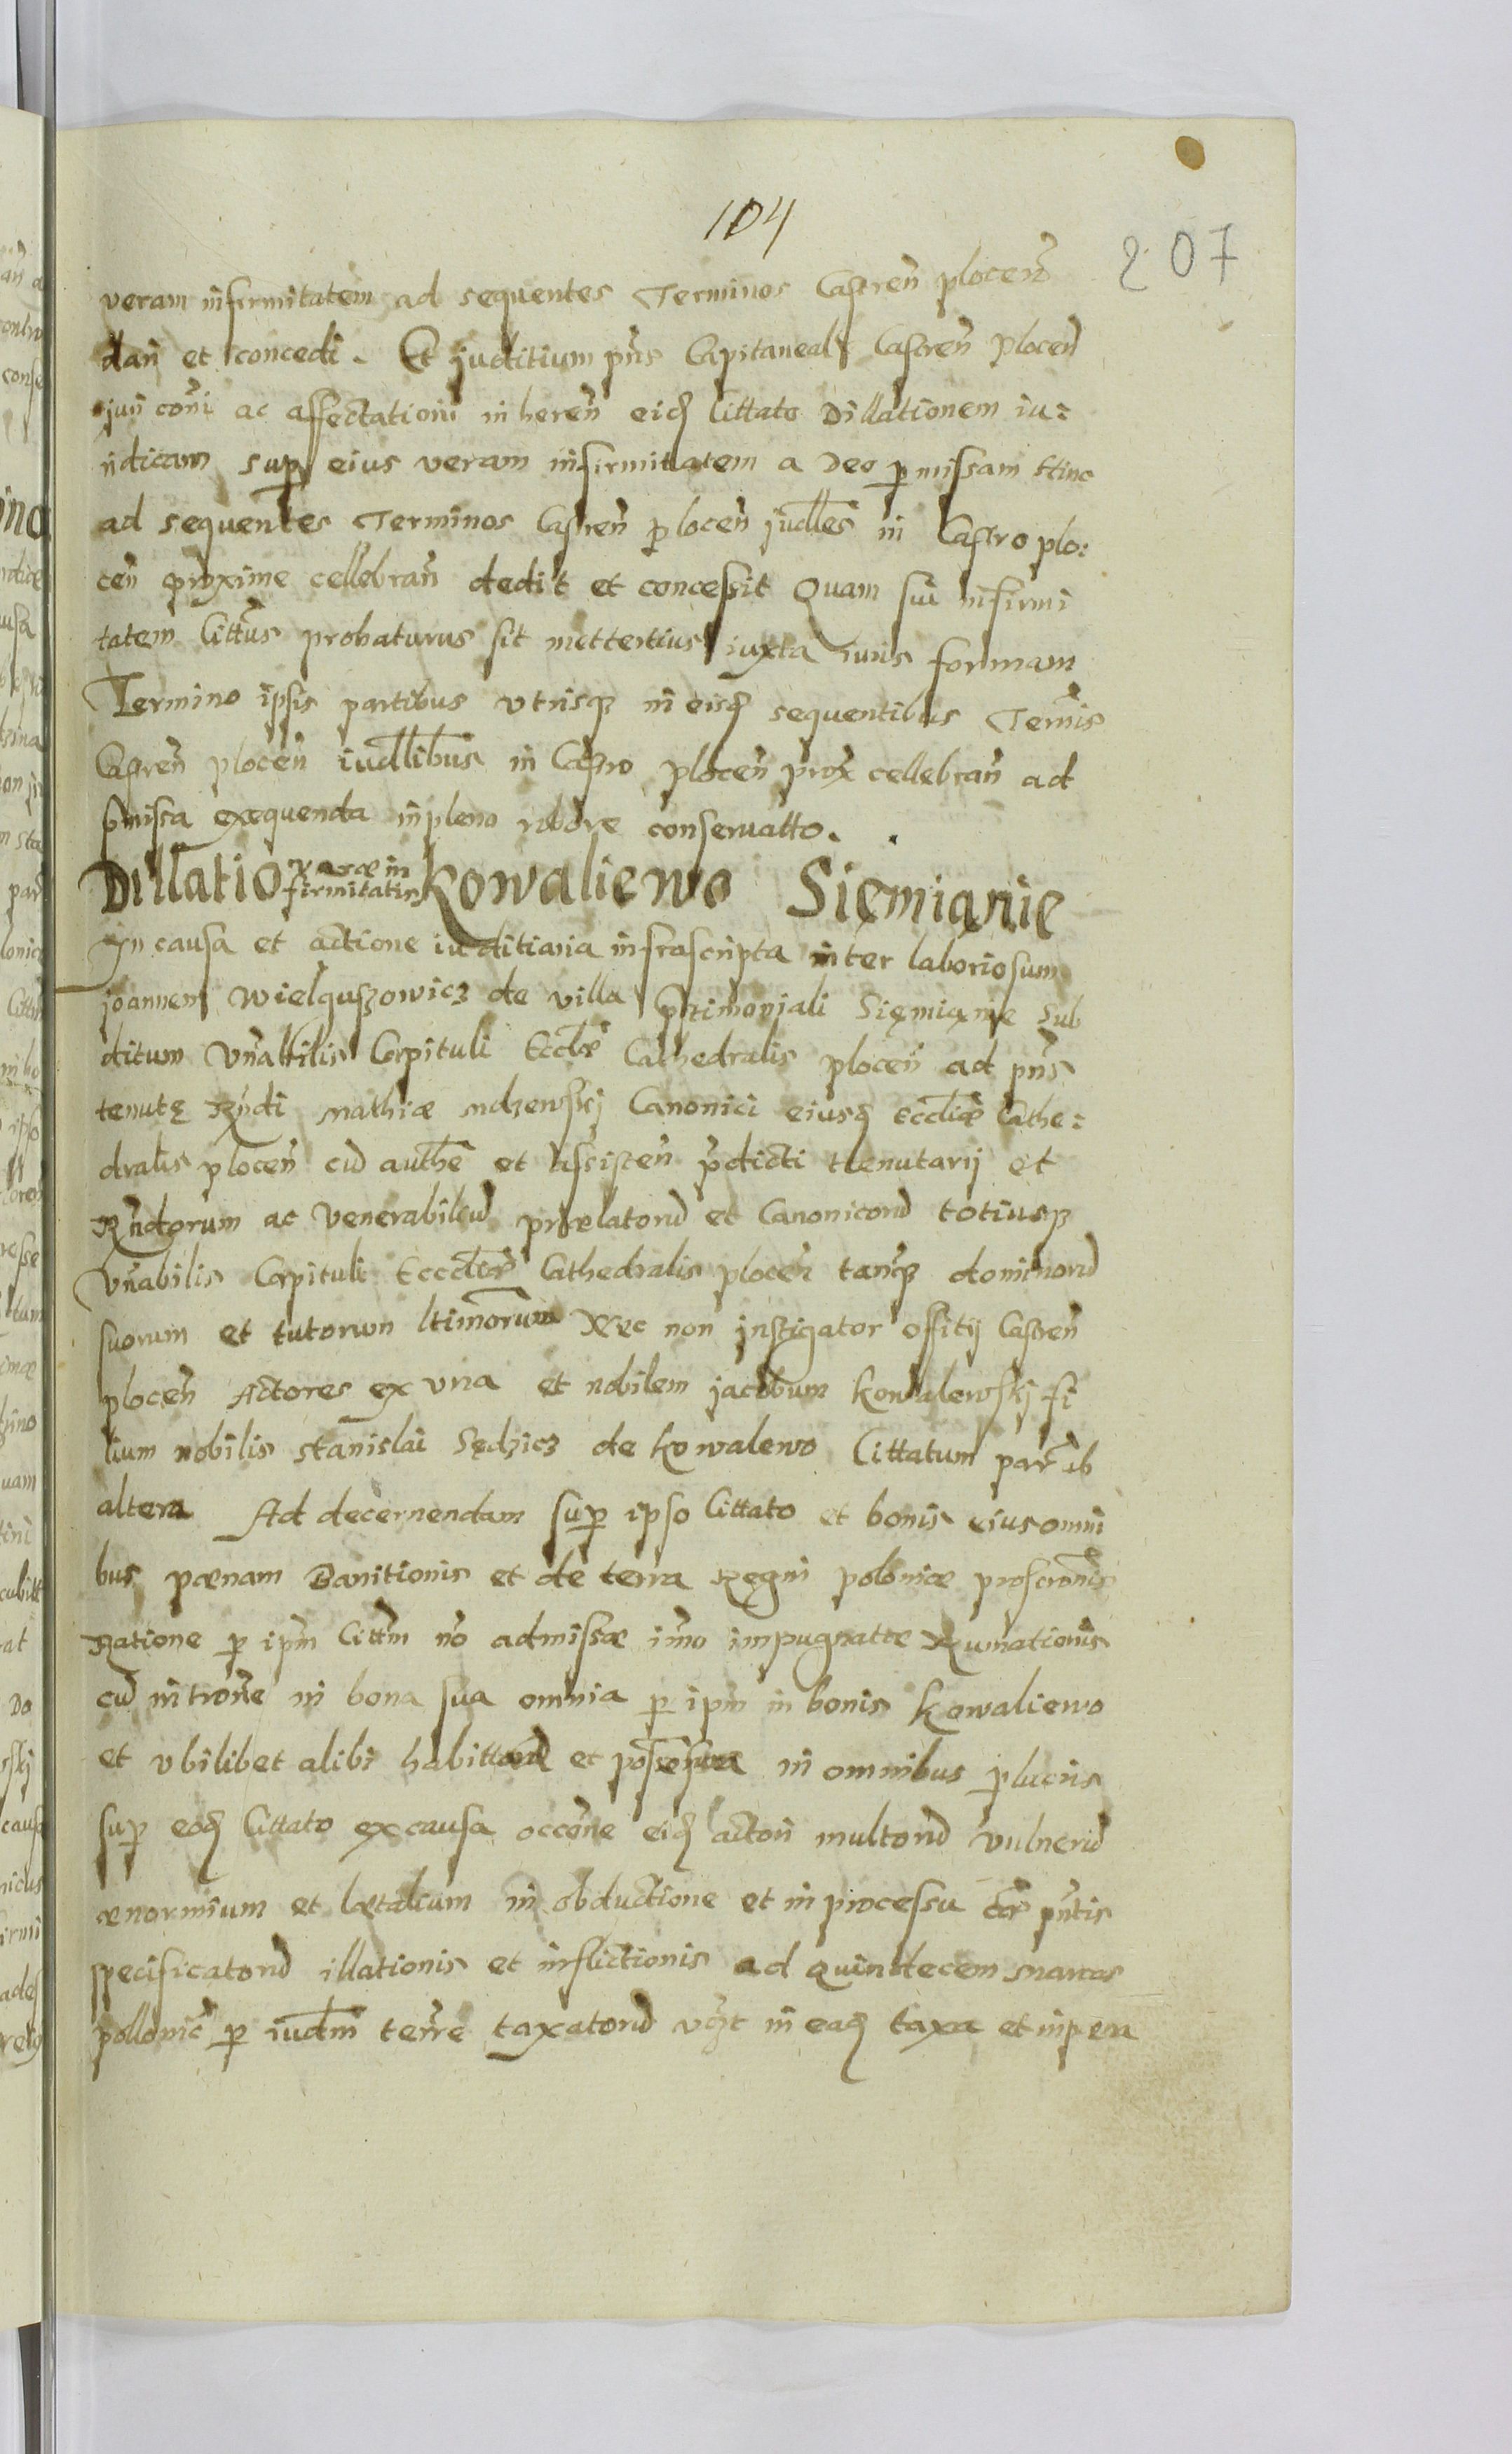 104
207
veram infirmitatem ad sequentes Terminos Castreñ plocen̄
dari et concedi. Et juditium pn̄s Capitaneale Castreñ Plocen̄
juri com̄i ac affectationi inhereñ eidꝫ Cittato Dillationem iu=
ridicam sup eius veram infirmitatem a Deo pmissam
ad sequentes Terminos Castreñ ploceñ judlles in Castro plo:
ceñ proxime cellebrañ dedit et concessit Quam sui infirmi
tatem Citt̄us probaturus sit mettertius iuxta iuris formam
Termino ipsis partibus utrisqꝫ in eisdꝫ sequentibus Termis
Castreñ ploceñ iudlibus in Castro ploceñ prox cellebrañ ad
p̄missa exequenda in pleno robore conservatto.
Dillatio veræ in
firmitatis Kowaliewo Siemianie
In causa et actione iuditiaria infrascripta inter laboriosum
joannem Wielguszowicz de villa p̄rimoniali Sięmiąnie Sub
ditum Vn̄abilis Capituli Eccl̄æ Cathedralis ploceñ ad pn̄s
tenutę Rn̄di Mathiæ Canonici eiusdꝫ Eccliæ Cathe:
dralis ploceñ cū auth̄e et assisteñ p̄dicti tenutarij et
Rn̄dorum ac Venerabiliū prælatorū et Canonicorū totiusqꝫ
Vn̄abilis Capituli Eccliæ Cathedralis ploceñ tanqꝫ dominorū
suorum et tutorum ltimorum Nec non instigator offitij Castreñ
ploceñ Actores ex una et nobilem jacobum Kowalewskj fi
lium nobilis Stanislai Sędzicz de Kowalewo Cittatum par̄ ab
altera Ad decernendam sup ipso Cittato et bonis eius omni
bus pænam Banitionis et de terra Regni poloniæ proscrōnis
Ratione p ipm̄ Citt̄m no admissæ imo impugnattæ Rumationis
cū introne in bona sua omnia p ipm̄ in bonis Kowaliewo
et ubilibet alibi habitta et possessa in omnibus plucris
sup eodꝫ Cittato ex causa occōne eidꝫ actori multorū vulnerū
ænormium et lætalium in obductione et in processu p̄ntis
specificatorū illationis et inflictionis ad quindecem marcas
pollonic̄ p iudm̄ terre taxatorū vꝫt in eadꝫ taxa et in pena